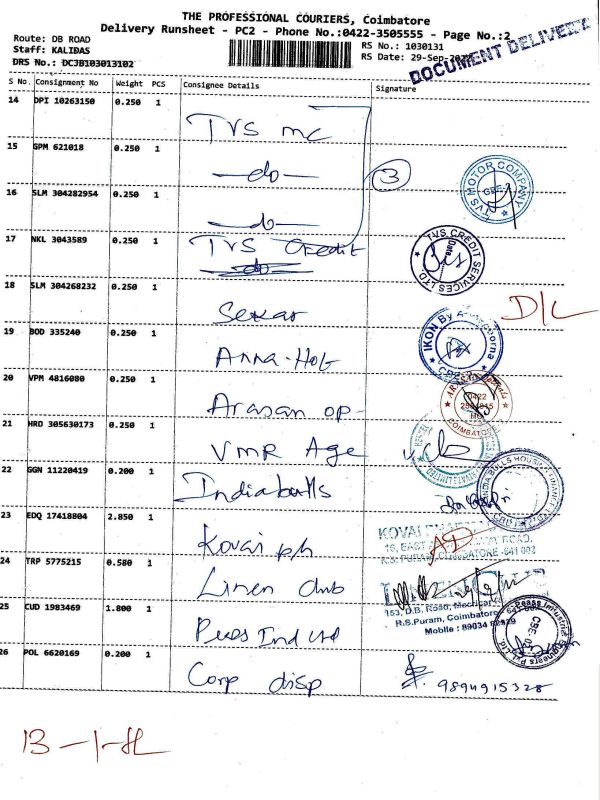 THE PROFESSIONAL COURIERS, Coimbatore
Delivery Runsheet - PC2 - Phone No.:0422-3505555 - Page No.:2
Route: DB ROAD
Staff: KALIDAS
DRS No.: DCJB103013102
RS No.: 1030131
RS Date: 29-Sep-
DOCUMENT DELIVERY
S No. Consignment No Weight PCS Consignee Details Signature
14 DPI 10263150 0.250 1 TVS mc
15 GPM 621018 0.250 1 -do-
3
TVS MOTOR COMPANY
16 SLM 304282954 0.250 1 -do-
17 NKL 3043589 0.250 1 TVS Credit
TVS CREDIT SERVICES LTD.
18 SLM 304268232 0.250 1 Sekar D/L
19 BOD 335240 0.250 1 Anna-Hot
IKON By
20 VPM 4816080 0.250 1 Arasan op-
0422
COIMBATORE
21 HRD 305630173 0.250 1 VMR Age
22 GGN 11220419 0.200 1 Indiabulls
INDIA BULLS HOUSING FINANCE
23 EDQ 17418804 2.850 1 Kovai ph
KOVAI
16, EAST ROAD,
R.S. PURAM, COIMBATORE -641 002
24 TRP 5775215 0.580 1 Linen club
153, D.B. Road,
R.S.Puram, Coimbatore
Mobile : 89034
25 CUD 1983469 1.800 1 Peass Ind Ltd
Peass Industrial Engineers
26 POL 6620169 0.200 1 Corp disp 9894915328
13-1-SL